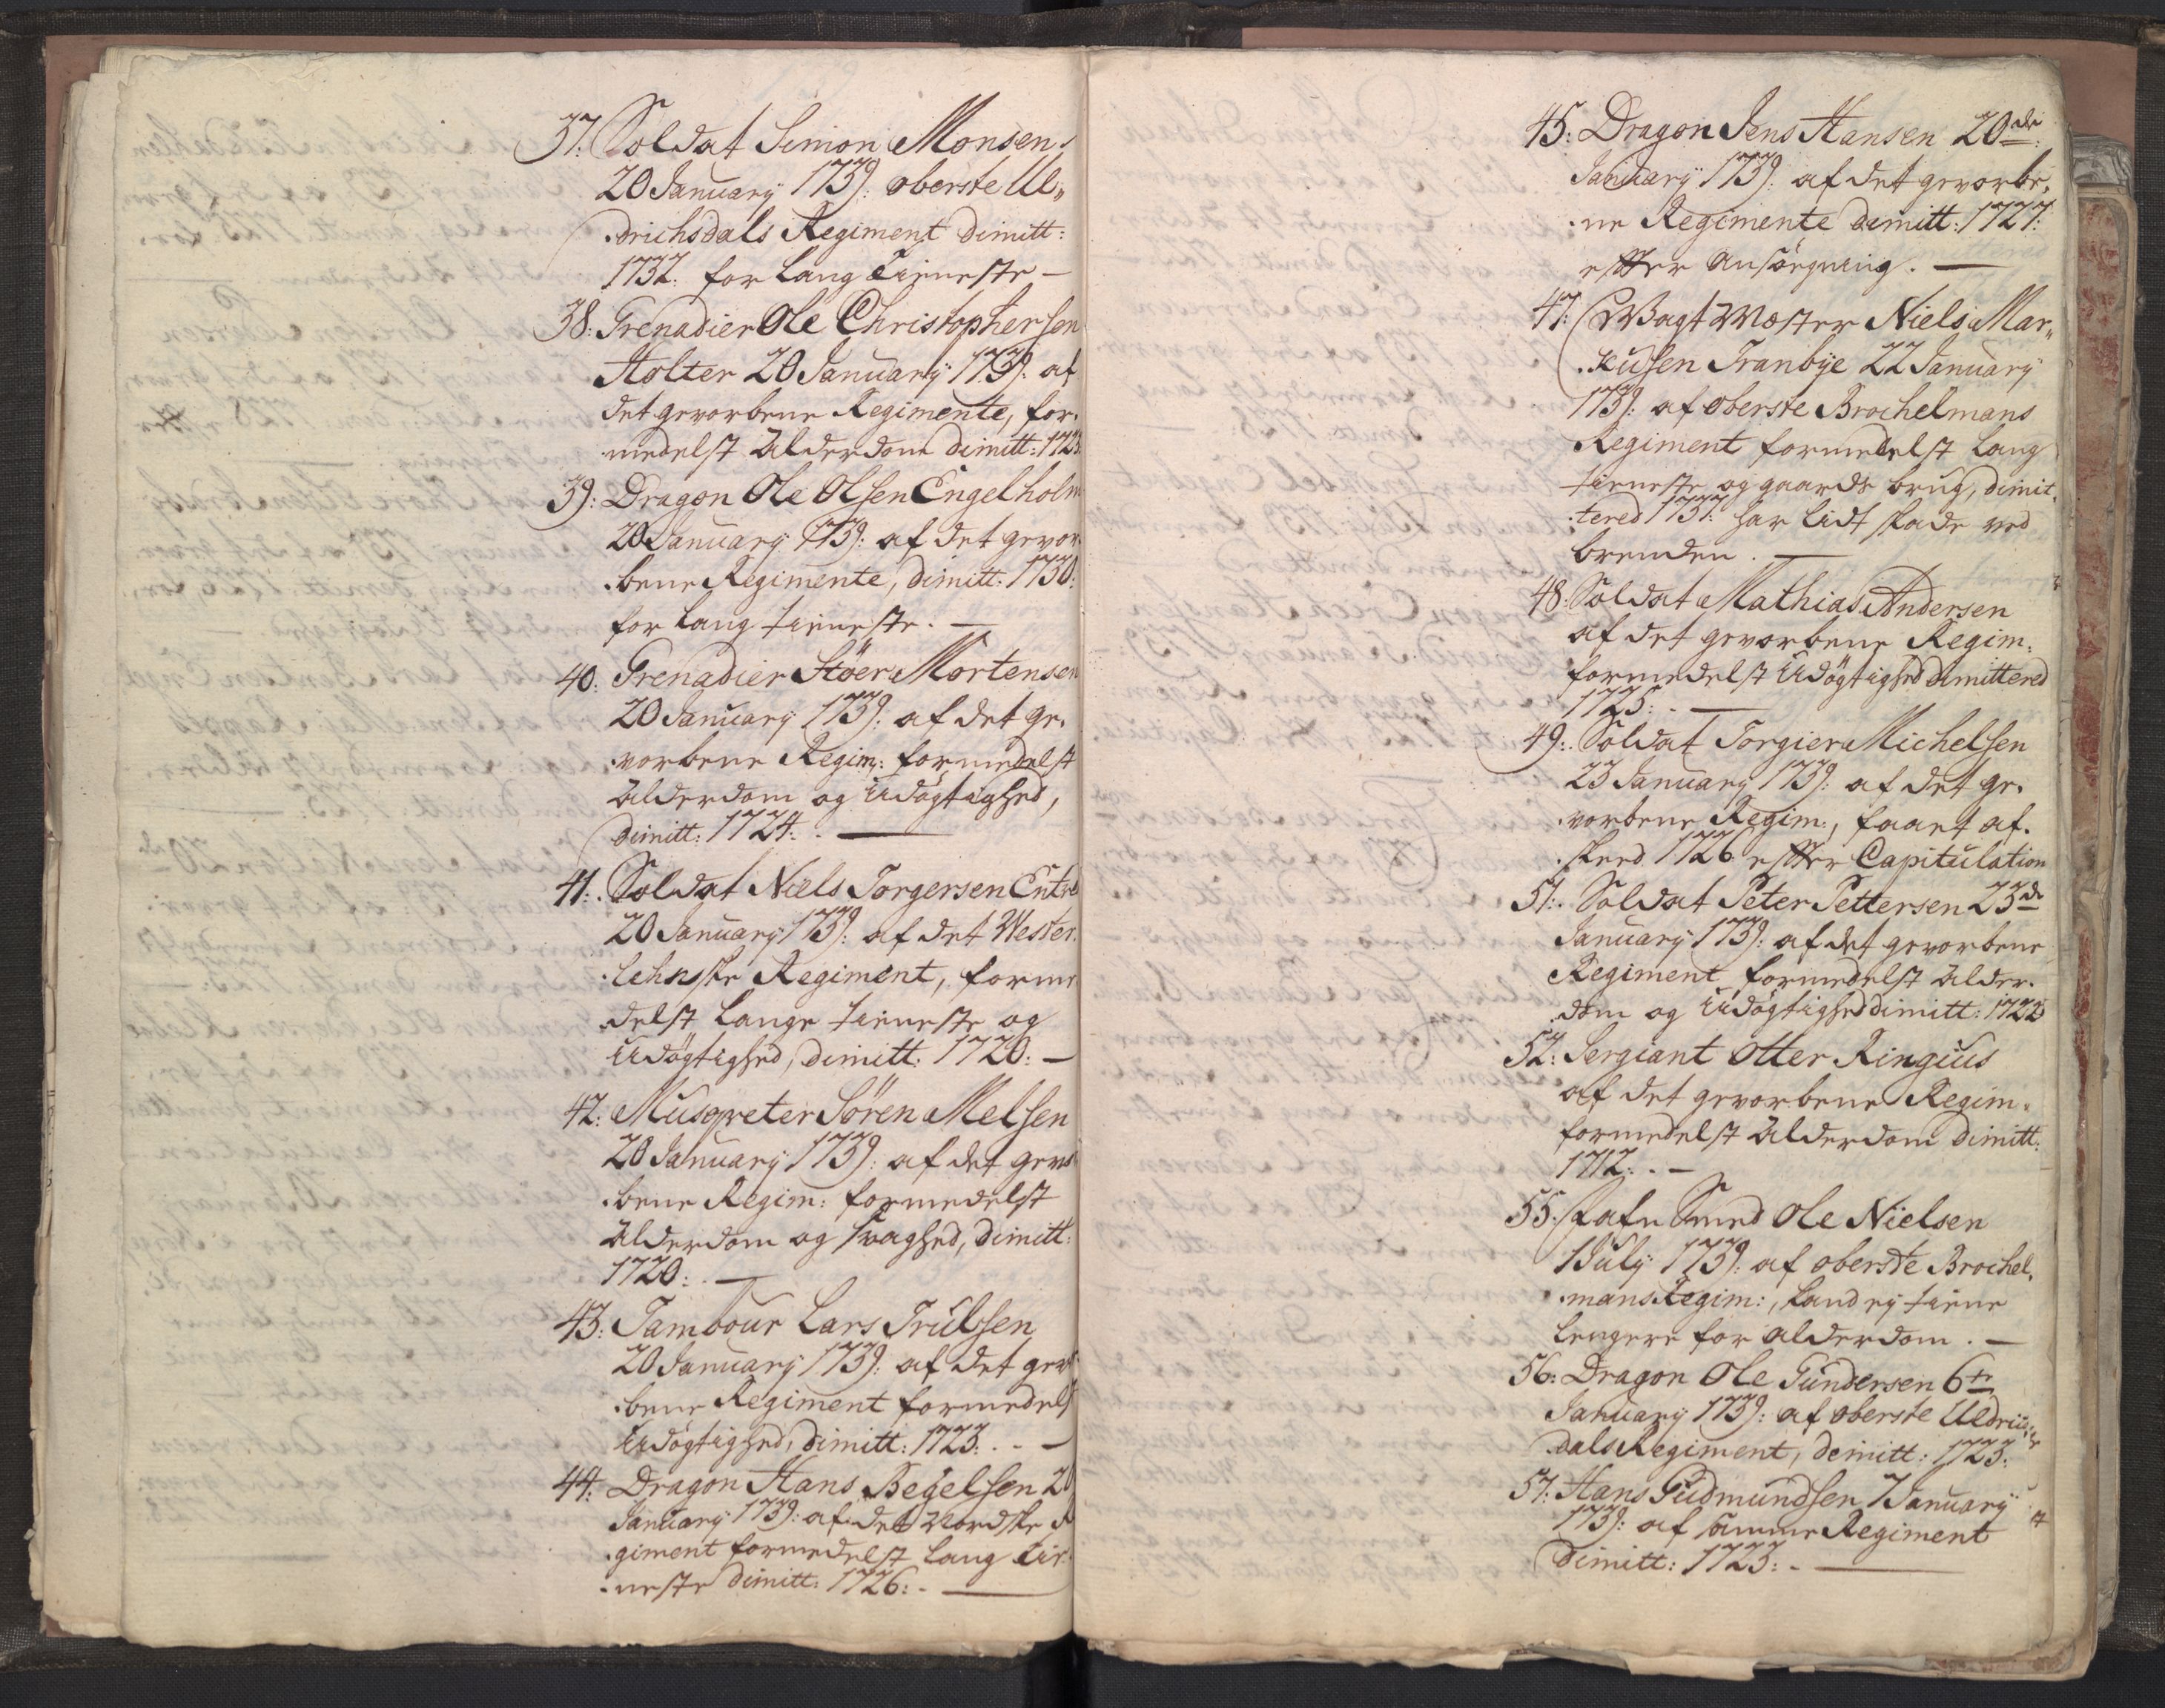 37: Soldat Simon Monsen
20 January 1739: oberste Ul„
drichsdals Regiment dimitt:
1732. for lang tieneste —
38: Grenadier Ole Christophersen
Holter 20 January 1739: af
det gevorbene Regimente, for„
medelst alderdom dimitt: 1723
39: Dragon Ole Olsen Engelholm
20 January 1739: af det gevor„
bene Regimente, dimitt: 1730:
for lang tieneste. —
40: Grenadier Støer Mortensen
20 January 1739: af det ge„
vorbene Regim: formedelst
alderdom og Udögtighed,
dimitt: 1724: . —
41: Soldat Niels Torgersen
20 January 1739: af det Wester„
lehnske Regiment, forme
delst lange tieneste og
Udögtighed, dimitt: 1720: —
42: Musqveter Sören Melsen
20 January 1739: af det gevo
bene Regim: formedelst
alderdom og svaghed, dimitt:
1720: . —
43: Tambour Lars Trulsen
20 January 1739: af det gevo
bene Regiment formedels
Udögtighed, dimitt: 1723: . - —
44: Dragon Hans Begelsen 20
January 1739: af det Nordske R
giment formedelst lang tie„
neste dimitt: 1726: . —
45: Dragon Jens Hansen 20de
January 1739: af det gevorbe„
ne Regimente dimitt: 1727:
efter ansögning. —
47: Wagtmæster Niels Mar„
kusen Tranbye 22 January
1739: af oberste Brochelmans
Regiment formedelst lang
tieneste og gaards brug, dimit„
tered 1737: har lidt skade ved
branden. —
48: Soldat Mathias Andersen
af det gevorbene Regim:
formedelst Udögtighed dimittered
1725: . —
49: Soldat Torgier Michelsen
23 January 1739: af det ge„
vorbene Regim:, faaet af„
skeed 1726 efter Capitulation
51: Soldat Peter Pettersen 23de
January 1739: af det gevorbene
Regiment formedelst alder„
dom og Udögtighed dimitt: 1722
52: Sergiant Otter Ringius
af det gevorbene Regim„
formedelst alderdom dimitt:
1712: . —
55: Fahne Smed Ole Nielsen
1 July 1739: af oberste Brochel„
mans Regim:, kand ey tiene
lengere for alderdom. —
56: Dragon Ole Gundersen 6te
January 1739: af oberste Uldrichs„
dals Regiment, dimitt: 1723:
57: Hans Gudmundsen 7 January
1739: af samme Regiment
dimitt: 1723: . —